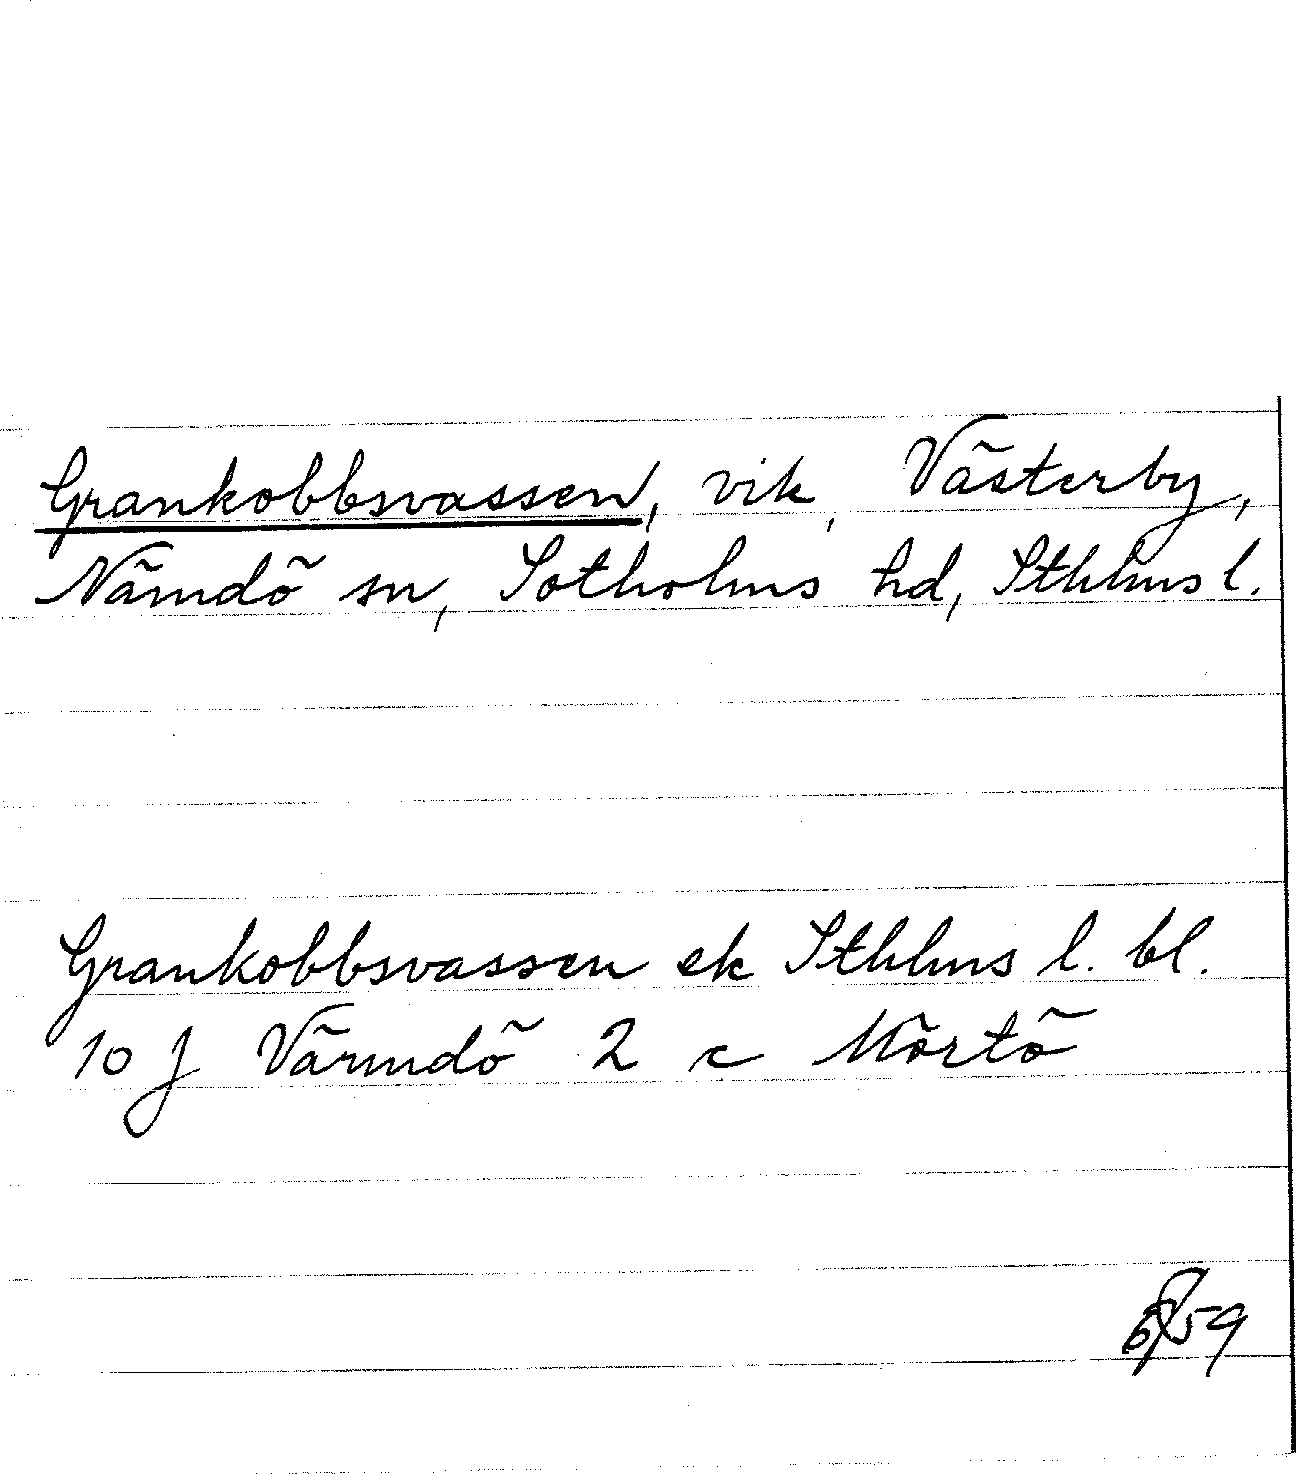 Grankobbsvassen, vik, Västerby,
Nämdö sn, Sotholms hd, Sthlms l.
Grankobbsvassen ek Sthlms l. bl.
10 j Värmdö 2 c Mörtö